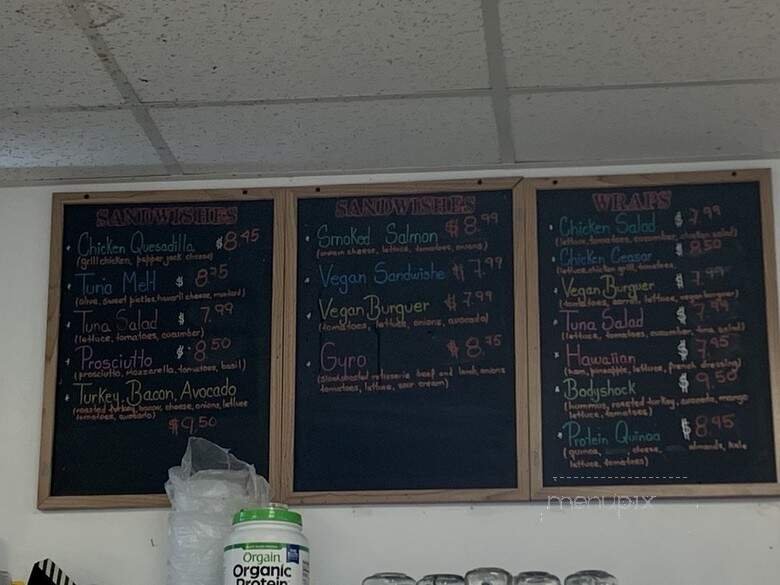 SANDWISHES
Chicken Quesadilla $8.45
(grill chicken, pepper jack cheese)
Tuna Melt $8.75
(olive, sweet pickles, havarti cheese, mustard)
Tuna Salad $7.99
(lettuce, tomatoes, cucumber)
Prosciutto $8.50
(prosciutto, mozzarella, tomatoes, basil)
Turkey, Bacon, Avocado
(roasted turkey, bacon, cheese, onions, lettuce
tomatoes, avocado)
$9.50
SANDWISHES
Smoked Salmon $8.99
(cream cheese, lettuce, tomatoes, onions)
Vegan Sandwishe $7.99
Vegan Burguer $7.99
(tomatoes, lettuce, onions, avocado)
Gyro $8.75
(slow roasted rotisserie beef and lamb, onions
tomatoes, lettuce, sour cream)
WRAPS
Chicken Salad $7.99
(lettuce, tomatoes, cucumber, chicken salad)
Chicken Ceasar $8.50
(lettuce, chicken grill, tomatoes,
Vegan Burguer 7.99
(tomatoes, carrots, lettuce, vegan burguer)
Tuna Salad $7.99
(lettuce, tomatoes, cucumber, tuna salad)
Hawaiian $7.95
(ham, pineapple, lettuce, french dressing)
Bodyshock $9.50
(hummus, roasted turkey, avocado, mango
lettuce, tomatoes)
Protein Quinoa $8.45
(quinoa, cheese, almonds, kale
lettuce, tomatoes)
menupix
Orgain
Organic
Protein